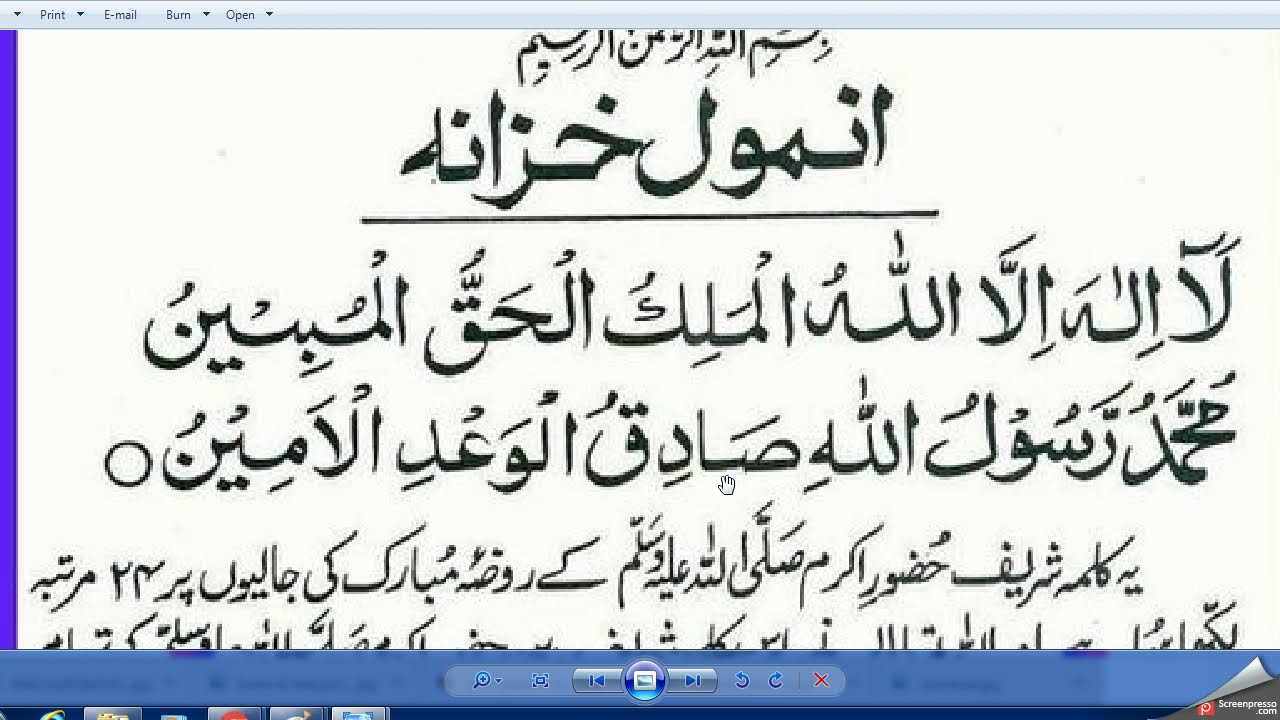 Print E-mail Burn Open
بِسْمِ اللّٰهِ الرَّحْمٰنِ الرَّحِيْمِ
انمول خزانه
لَآ اِلٰهَ اِلَّا اللّٰهُ الْمَلِكُ الْحَقُّ الْمُبِيْنُ
مُحَمَّدُ رَّسُوْلُ اللّٰهِ صَادِقُ الْوَعْدِ الْاَمِيْنُ○
یہ کلمہ شریف حُضورِ اکرم صَلَّی اللّٰہ علیہ وَسَلَّم کے روضۂ مُبارک کی جالیوں پر ۲۴ مرتبہ
Screenpresso
.com